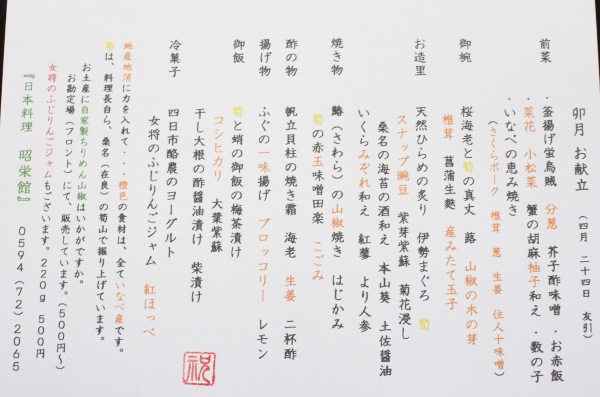 卯月 お献立
（四月 二十四日 友引）
前菜
・釜揚げ蛍烏賊 分葱 芥子酢味噌 ・お赤飯
・菜花 小松菜 蟹の胡麻柚子和え ・数の子
・いなべの恵み焼き
（さくらポーク 椎茸 葱 生姜 住人十味噌）
御椀
桜海老と筍の真丈 蕗 山椒の木の芽
椎茸 菖蒲生麩 産みたて玉子
お造里
天然ひらめの炙り 伊勢まぐろ 筍
スナップ豌豆 紫芽紫蘇 菊花浸し
桑名の海苔の酒和え 本山葵 土佐醤油
いくらみぞれ和え 紅蓼 より人参
焼き物
鰆（さわら）の山椒焼き はじかみ
筍の赤玉味噌田楽 こごみ
酢の物
帆立貝柱の焼き霜 海老 生姜 二杯酢
揚げ物
ふぐの一味揚げ ブロッコリー レモン
御飯
筍と蛸の御飯の梅茶漬け
コシヒカリ 大葉紫蘇
干し大根の酢醤油漬け 柴漬け
冷菓子
四日市酪農のヨーグルト
女将のふじりんごジャム 紅ほっぺ
祝
地産地消に力を入れて・・・橙色の食材は、全ていなべ産です。
筍は、料理長自ら、桑名（在良）の筍山で掘り上げています。
お土産に自家製ちりめん山椒はいかがですか。
お勘定場（フロント）にて、販売しています。（500円～）
女将のふじりんごジャムもございます。220g 500円
『日本料理 昭栄館』 0594（72）2065